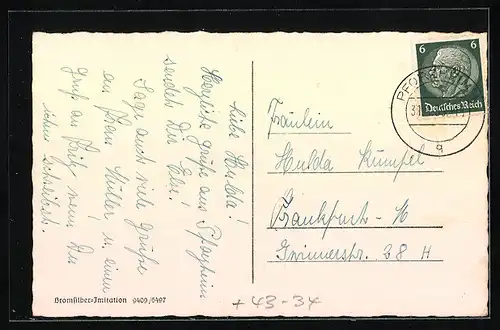 Liebe Hulda!
Herzliche Grüße aus Pforzheim
sendet Dir Elsi!
Sage auch viele Grüße
an Frau Müller u. einen
Gruß an Fritz wenn Du
ihm schreibst.
6 6
Deutsches Reich
Fräulein
Hulda Kumpel
Frankfurt-M
38 H
Bromsilber-Imitation 9409/6497
+43-34